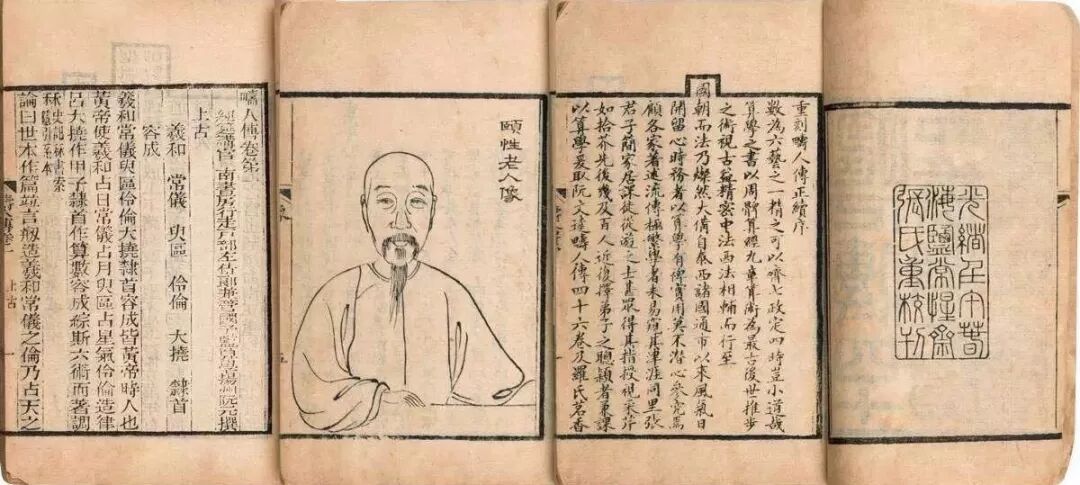 光緒壬午春
海鹽常惺齋
張氏重校刊
重刻疇人傳正續序
數為六藝之一精之可以齊七政定四時豈小道哉
算學之書以周髀算經九章算術為最古後世推步
之術視古益精密中法西法相輔而行至
國朝而法乃燦然大備自泰西諸國通市以來風氣日
開留心時務者以算學有裨實用莫不潛心參究焉
顧各家著述流傳極尠學者未易窺其津涯同里張
君子簡家居課徒從遊之士甚眾得其指授視采芹
如拾芥先後幾及百人近復擇弟子之聰穎者兼課
以算學爰取阮文達疇人傳四十六卷及羅氏茗香
頤性老人像
疇人傳卷第一
經筵講官南書房行走戶部左侍郎兼管國子監算學揚州阮元撰
上古
羲和 常儀 臾區 伶倫 大撓 隸首
容成
羲和常儀臾區伶倫大撓隸首容成皆黃帝時人也
黃帝使羲和占日常儀占月臾區占星氣伶倫造律
呂大撓作甲子隸首作算數容成綜斯六術而著調
秝史記秝書索隱引系本
論曰世本作篇竝言剏造羲和常儀之倫乃占天之
上古
一